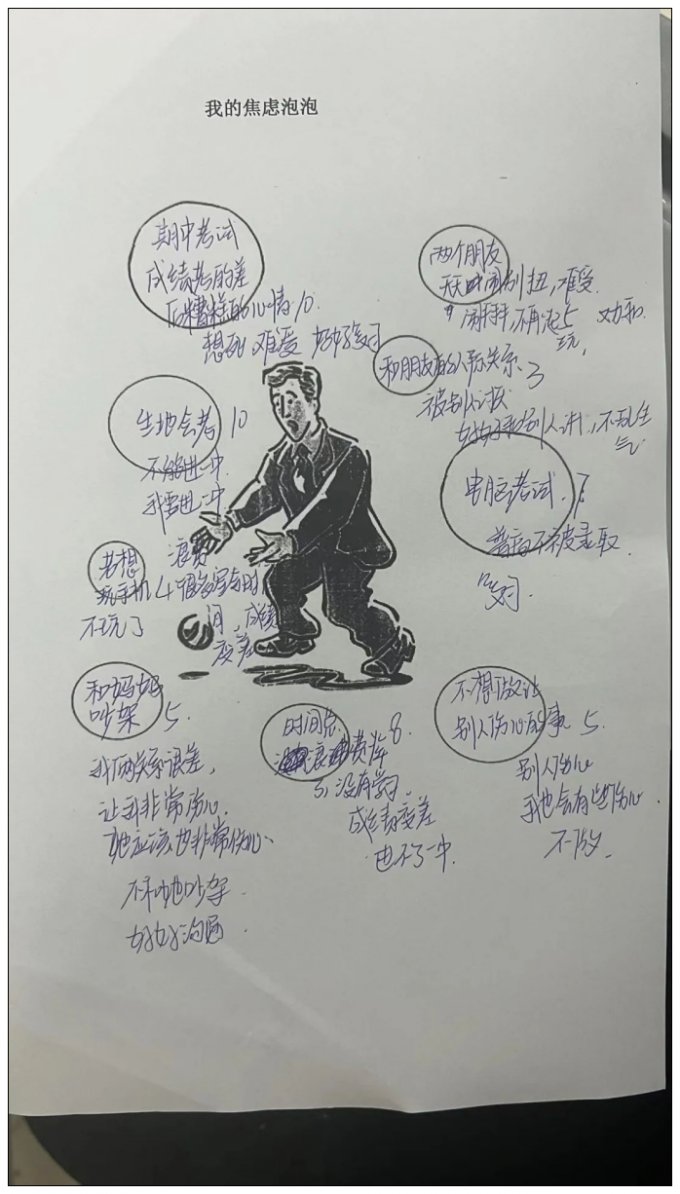 我的焦虑泡泡
期中考试
成绩考的差
糟糕的心情10.
想死,难受 好好学习
两个朋友
天天闹别扭,难受.
5 劝和
玩,
和朋友的人际关系 3
被别人讨厌
好好和别人讲,不乱生
气
生地会考 10
不能进一中.
我要进一中
电脑考试. 7
普高不被录取.
学习.
老想
玩手机 4
不玩了
浪费
很多写与时
间,成绩
变差
和妈妈
吵架 5.
我俩关系很差,
让我非常伤心.
她应该也非常伤心.
不和她吵架.
好好沟通
时间总
浪费掉 8.
没有学习.
成绩变差
进不了一中.
不想做让
别人伤心的事 5.
别人伤心
我也会有些伤心
不做.